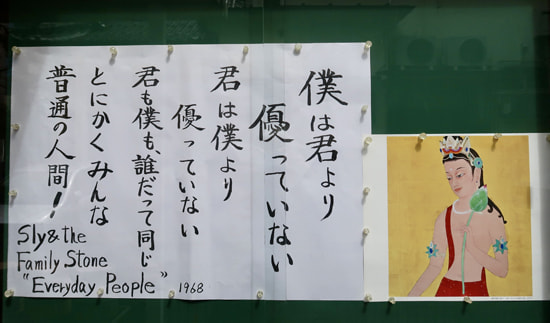 僕は君より
優っていない
君は僕より
優っていない
君も僕も、誰だって同じ
とにかくみんな
普通の人間!
Sly & the
Family Stone
"Everyday People" 1968